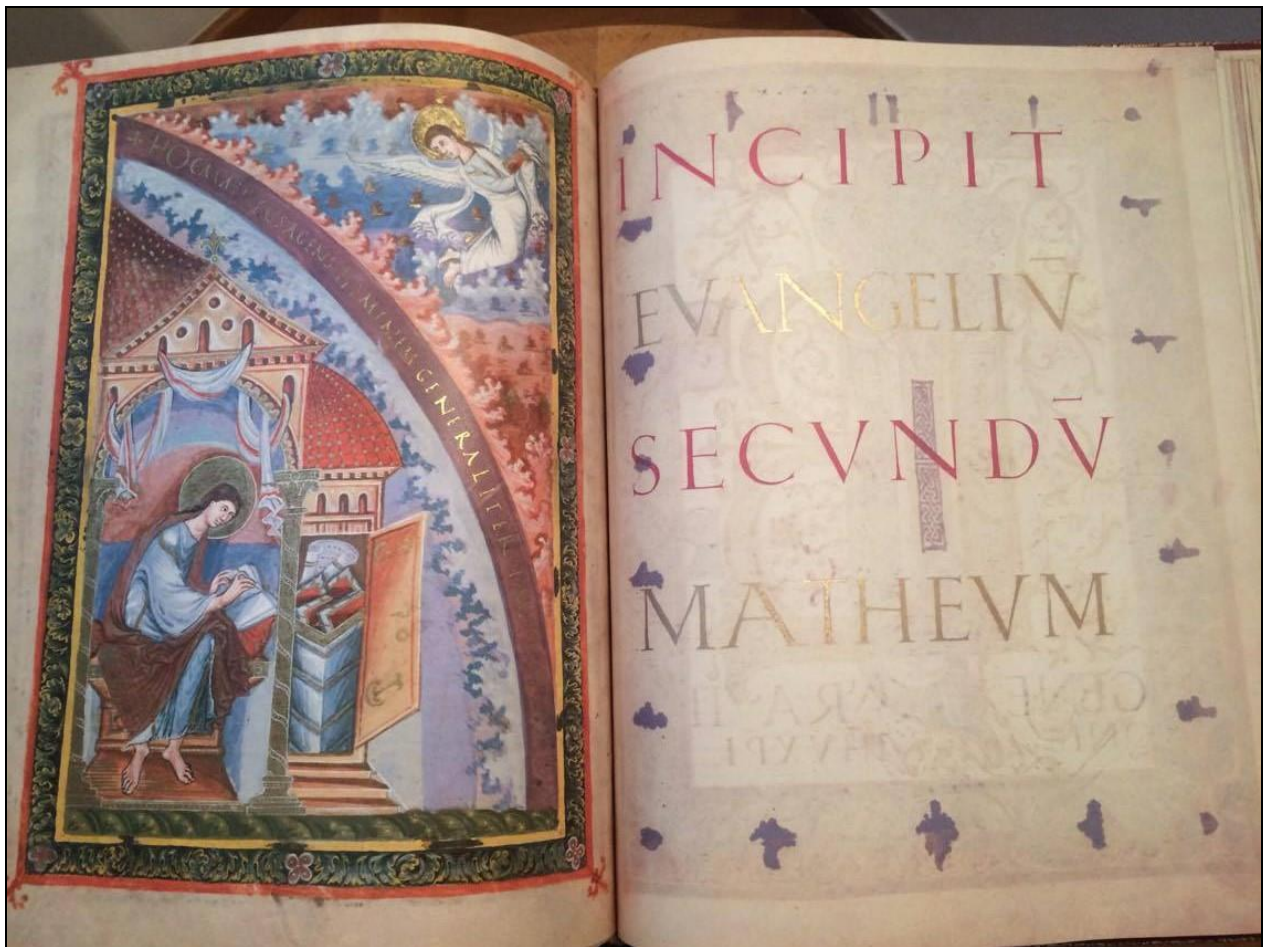 HOC MATHEUS AGENS HOMINEM GENERALITER
INCIPIT
EVANGELIV̄
SECVNDV̄
MATHEVM